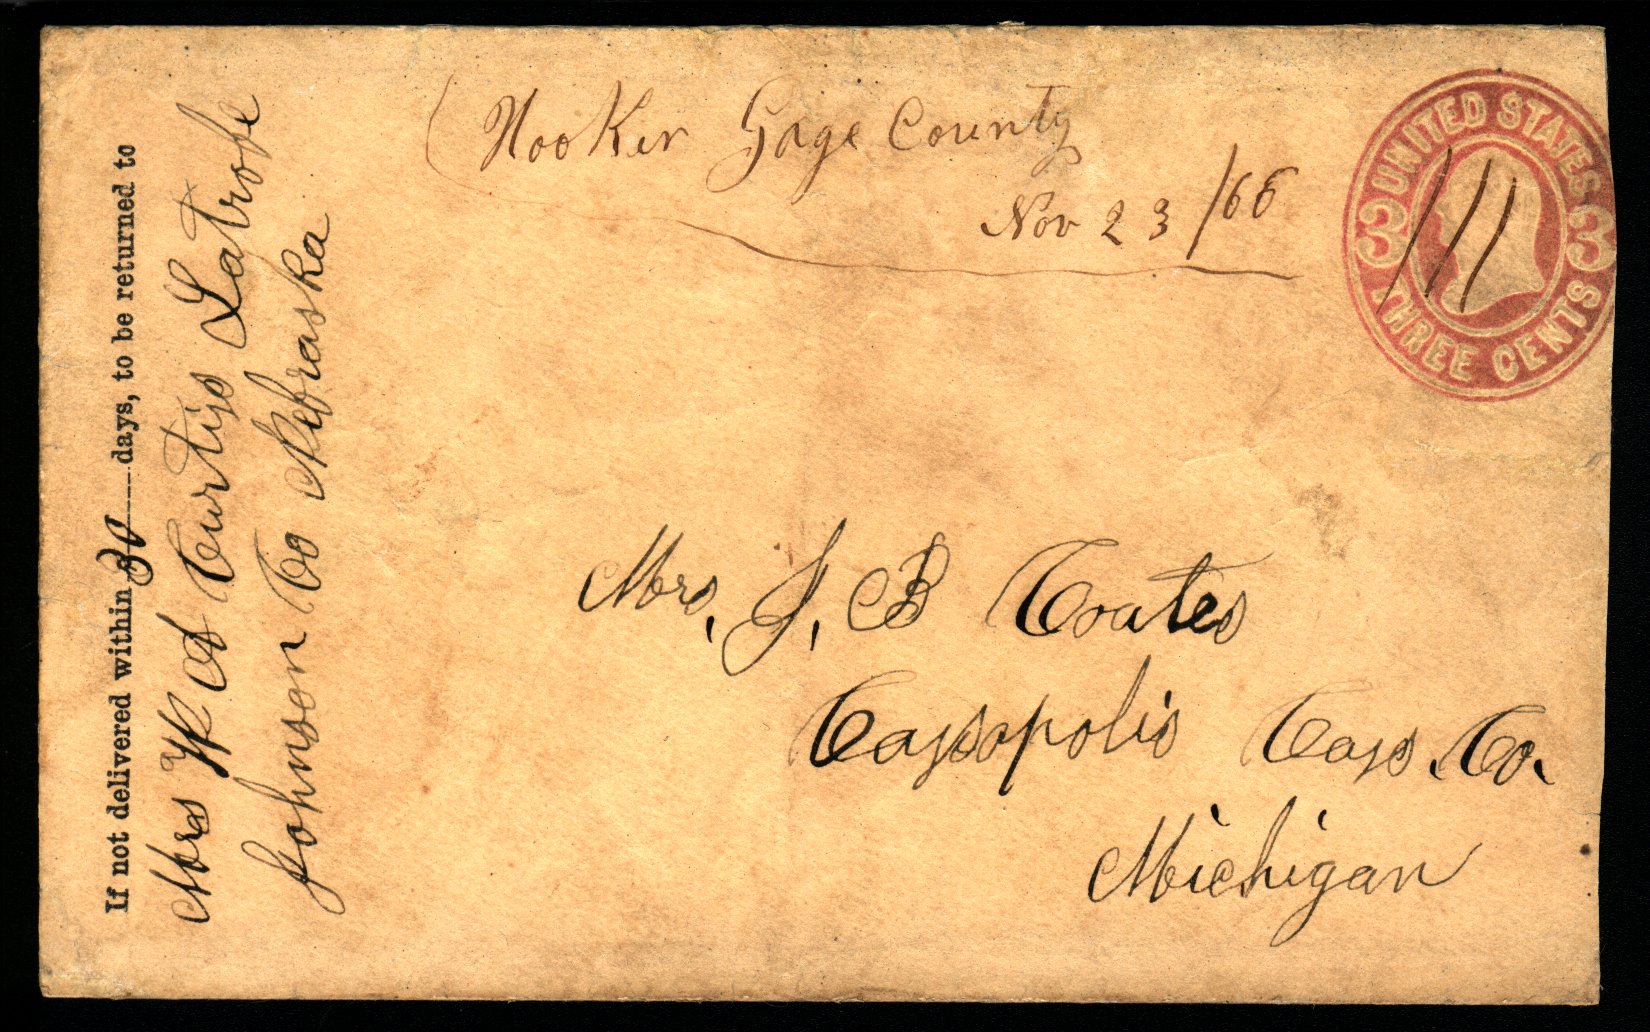 Hooker Gage County
Nov 23/66
UNITED STATES
3 3
THREE CENTS
If not delivered within 30 days, to be returned to
Mrs Curtiss Latrobe
Johnson Co Nebraska
Mrs, J, B Coates
Cassopolis Cass. Co.
Michigan